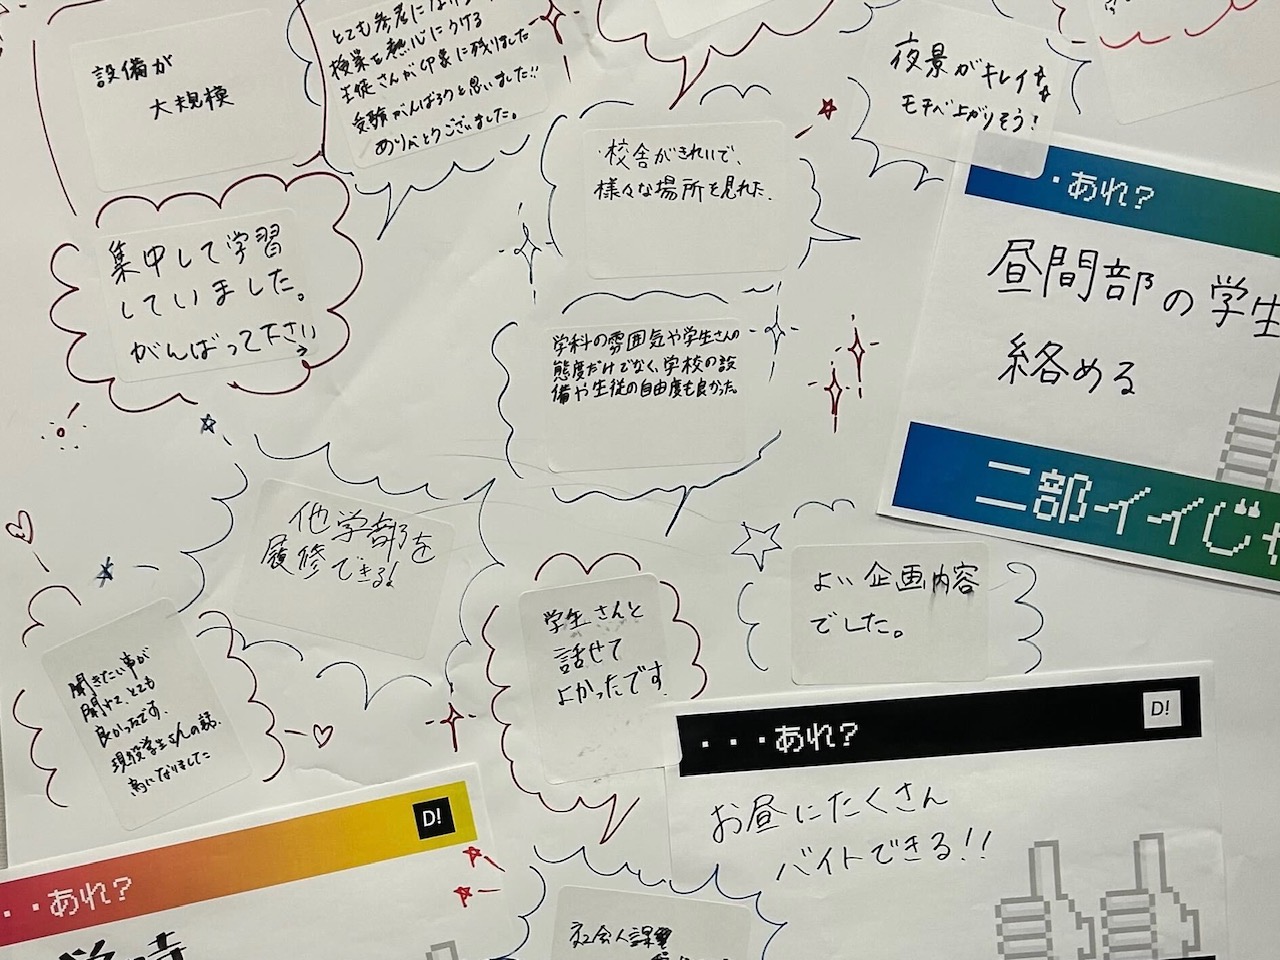 設備が
大規模
とても参考に
授業を熱心にうける
生徒さんが印象に残りました
受験がんばろうと思いました!!
ありがとうございました。
夜景がキレイ
モチベ上がりそう!
・校舎がきれいで、
様々な場所を見れた。
・あれ?
昼間部の学生
絡める
二部イイじゃ
集中して学習
していました。
がんばって下さい
学科の雰囲気や学生さんの
態度だけでなく、学校の設
備や生徒の自由度も良かった。
他学部を
履修できる!
よい企画内容
でした。
学生さんと
話せて
よかったです
聞きたい事が
聞けて、とても
良かったです。
現役学生さんの話、
為になりました
・・・あれ?
D!
お昼にたくさん
バイトできる!!
D!
・・あれ?
社会人課